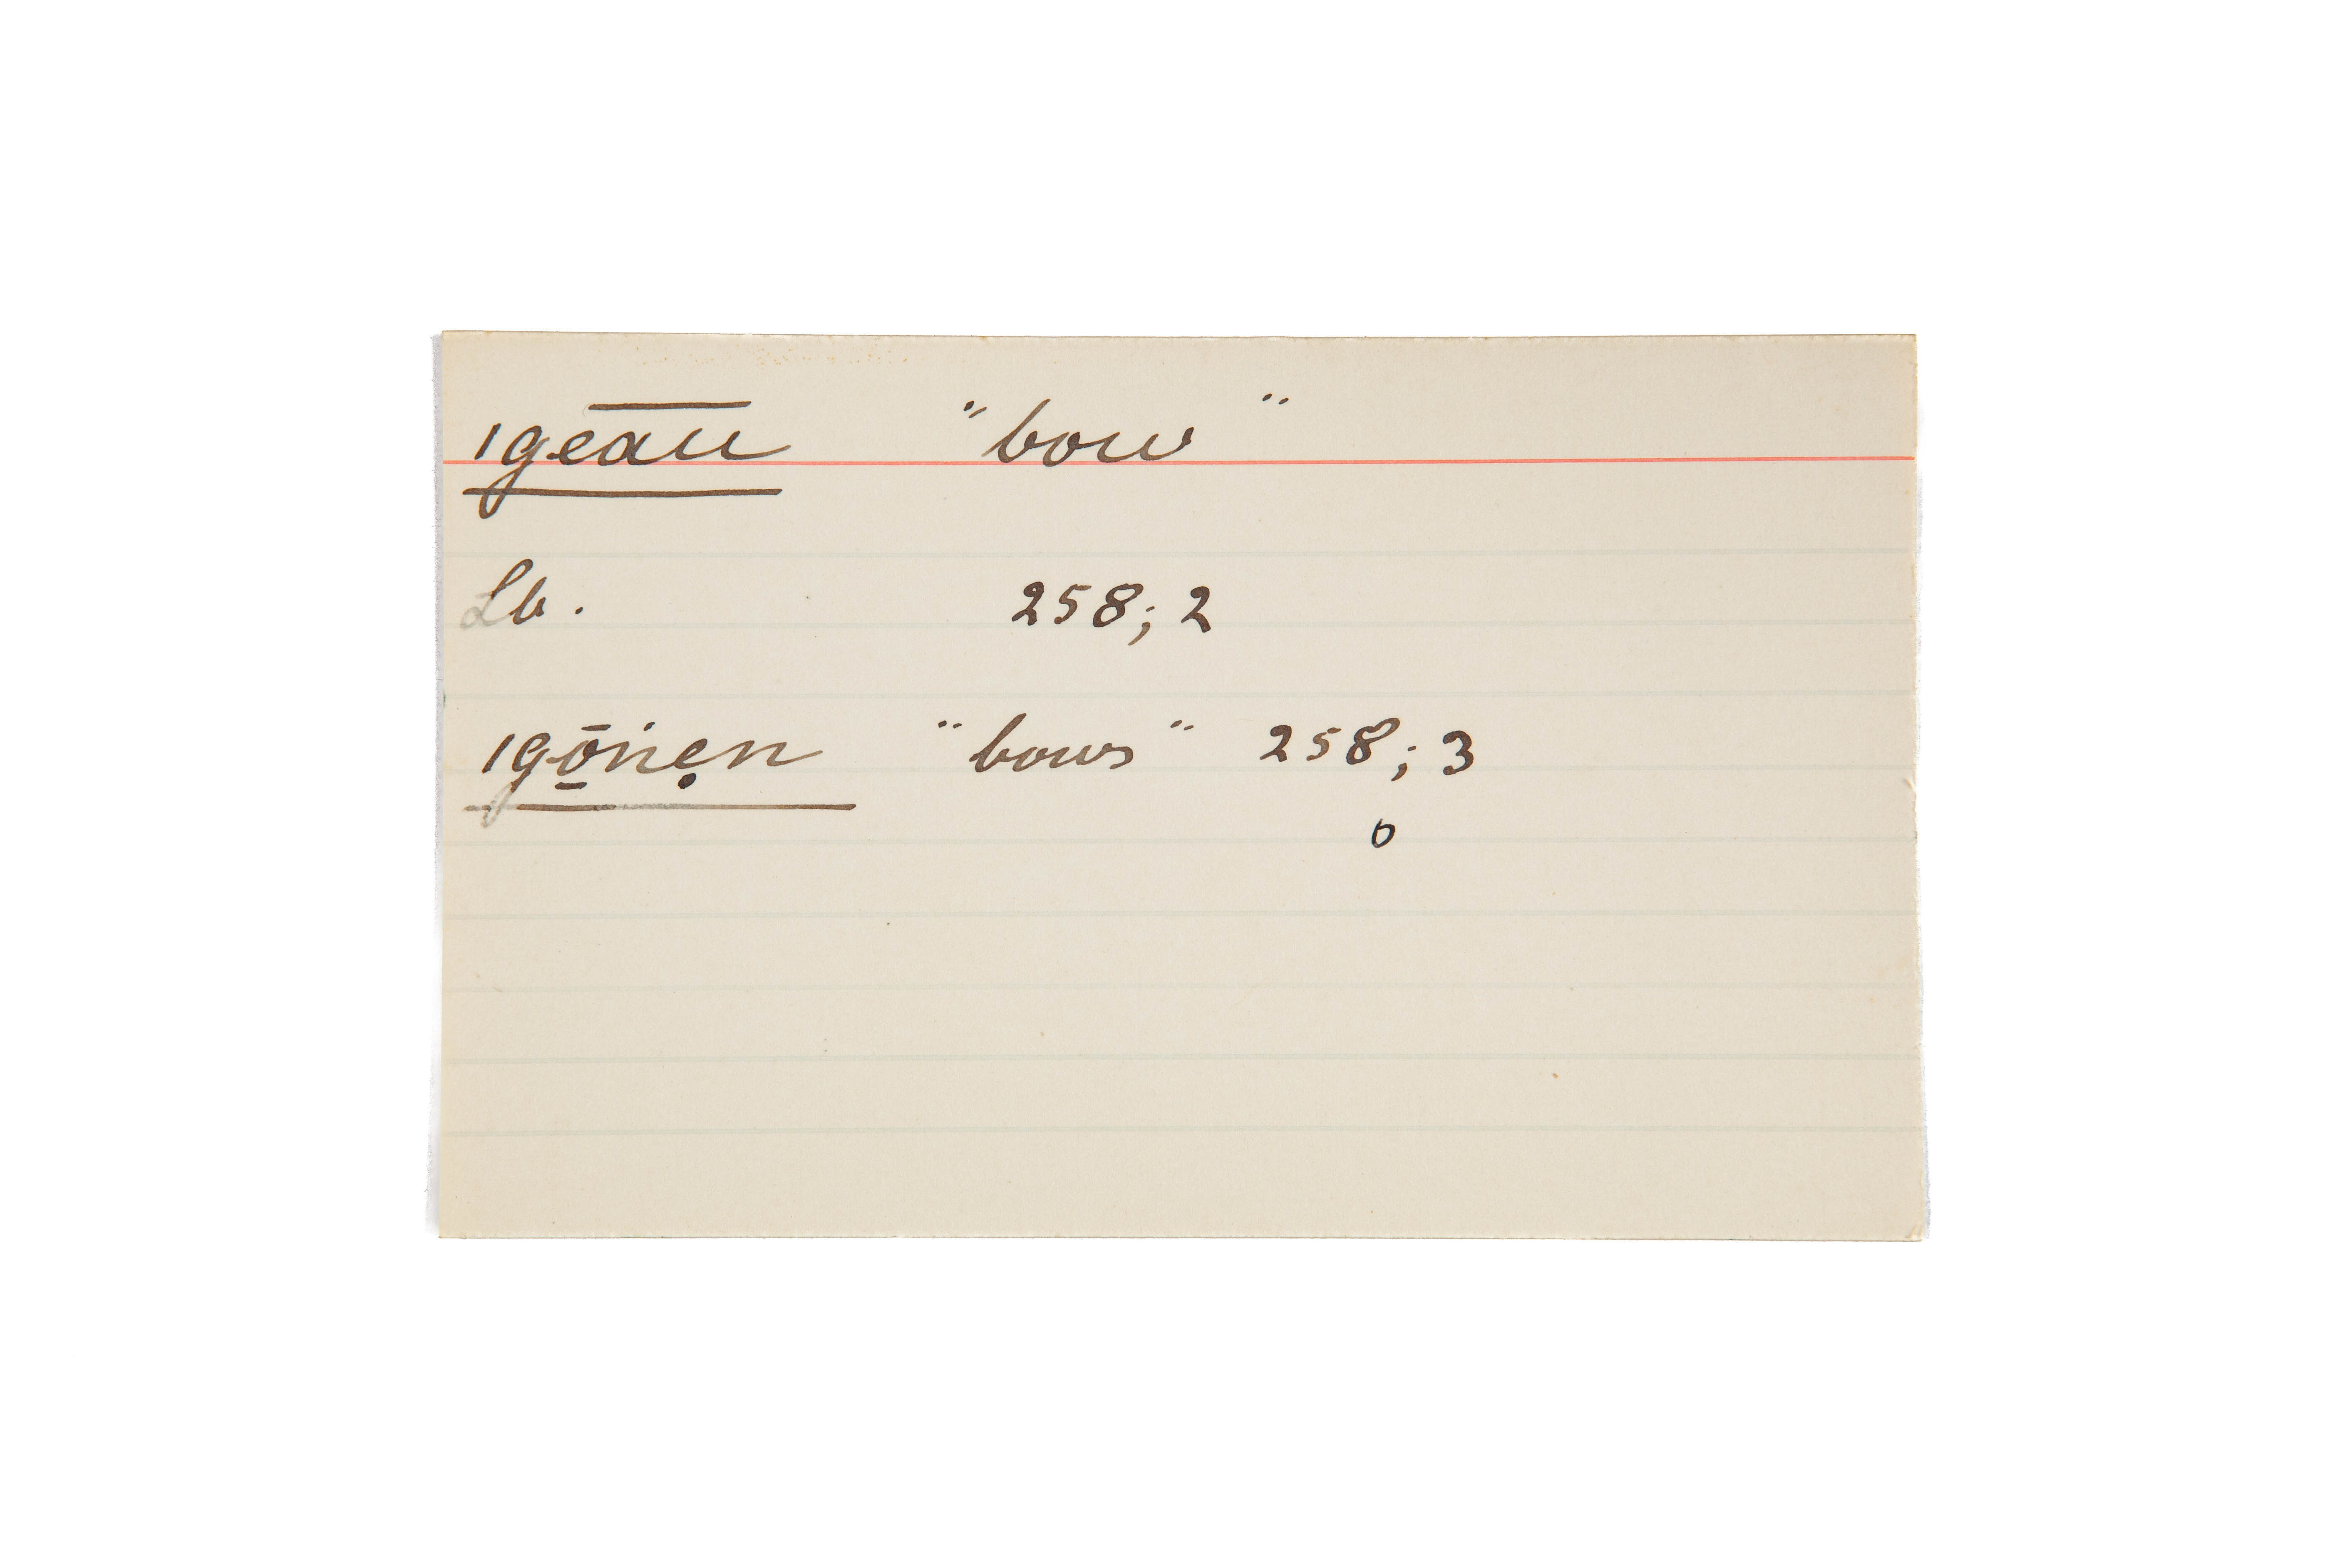 ıge͞a͞u "bow"
Lb. 258; 2
ıgō̱ṅẹn "bows" 258; 3
o